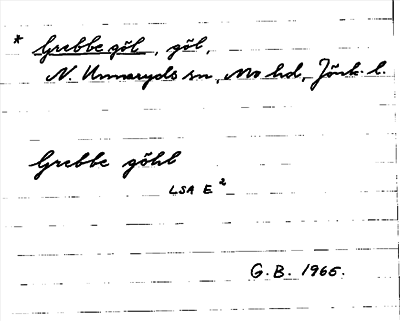 * Grebbe göl, göl,
N. Unnaryds sn, Mo hd, Jönk. l.
Grebbe göhl
LSA E 2
G.B. 1966.